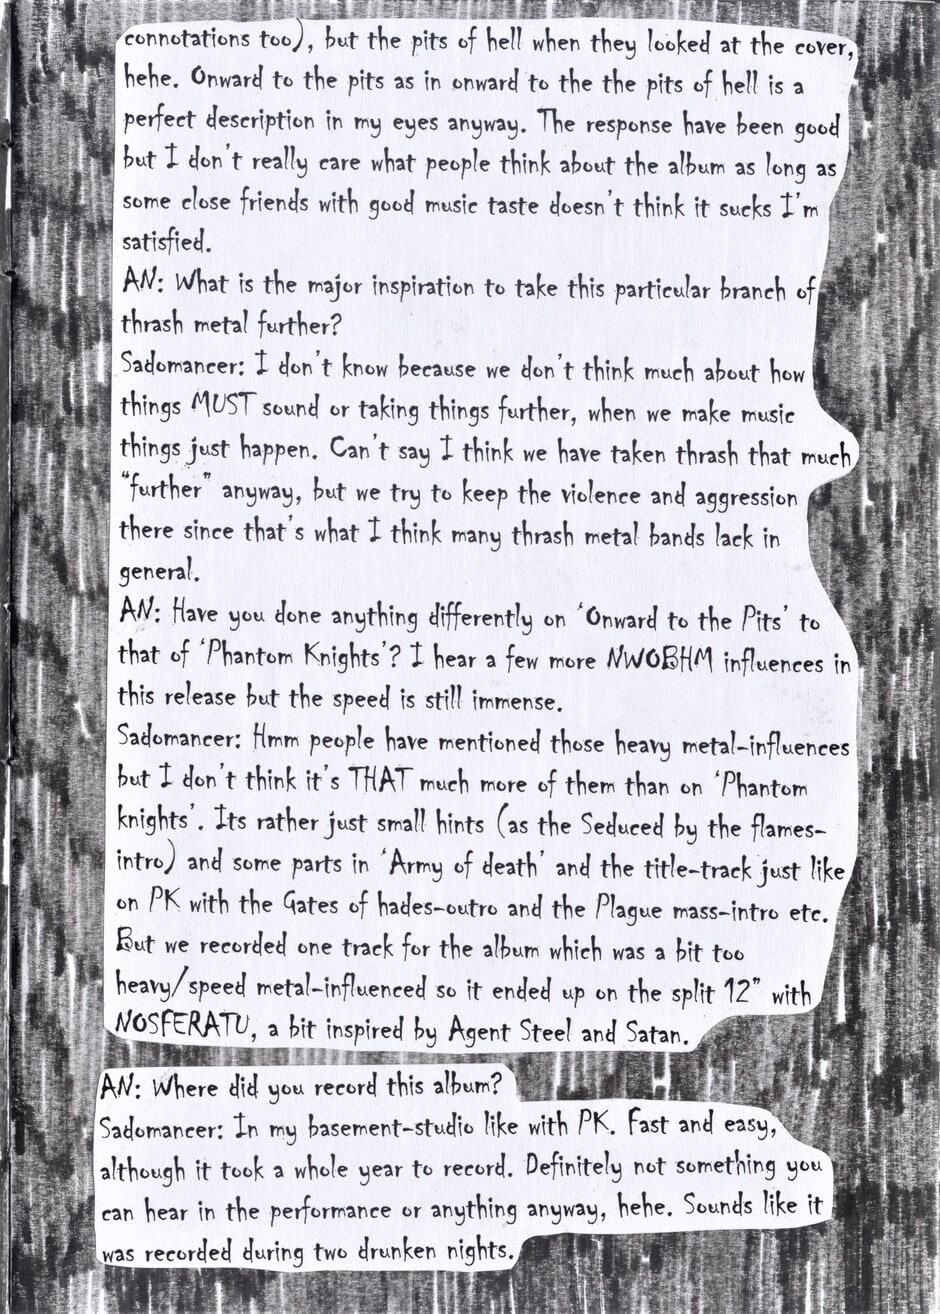 connotations too), but the pits of hell when they looked at the cover,
hehe. Onward to the pits as in onward to the the pits of hell is a
perfect description in my eyes anyway. The response have been good
but I don't really care what people think about the album as long as
some close friends with good music taste doesn't think it sucks I'm
satisfied.
AN: What is the major inspiration to take this particular branch of
thrash metal further?
Sadomancer: I don't know because we don't think much about how
things MUST sound or taking things further, when we make music
things just happen. Can't say I think we have taken thrash that much
"further" anyway, but we try to keep the violence and aggression
there since that's what I think many thrash metal bands lack in
general.
AN: Have you done anything differently on 'Onward to the Pits' to
that of 'Phantom Knights'? I hear a few more NWOBHM influences in
this release but the speed is still immense.
Sadomancer: Hmm people have mentioned those heavy metal-influences
but I don't think it's THAT much more of them than on 'Phantom
knights'. Its rather just small hints (as the Seduced by the flames-
intro) and some parts in 'Army of death' and the title-track just like
on PK with the Gates of hades-outro and the Plague mass-intro etc.
But we recorded one track for the album which was a bit too
heavy/speed metal-influenced so it ended up on the split 12" with
NOSFERATU, a bit inspired by Agent Steel and Satan.
AN: Where did you record this album?
Sadomancer: In my basement-studio like with PK. Fast and easy,
although it took a whole year to record. Definitely not something you
can hear in the performance or anything anyway, hehe. Sounds like it
was recorded during two drunken nights.